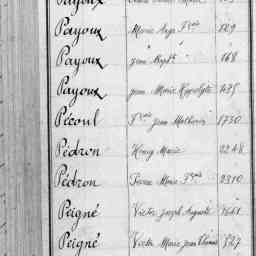 Payoux
Payoux Marie Ange Fçois 129
Payoux Jean Bapte 168
Payoux Jean Marie Hippolyte 435
Pécoul Fçois Jean Mathurin 1730
Pédron Henry Marie 2248
Pédron Pierre Marie Fçois 2310
Peigné Victor Joseph Auguste
Peigné Victor Marie Jean Thomas 327